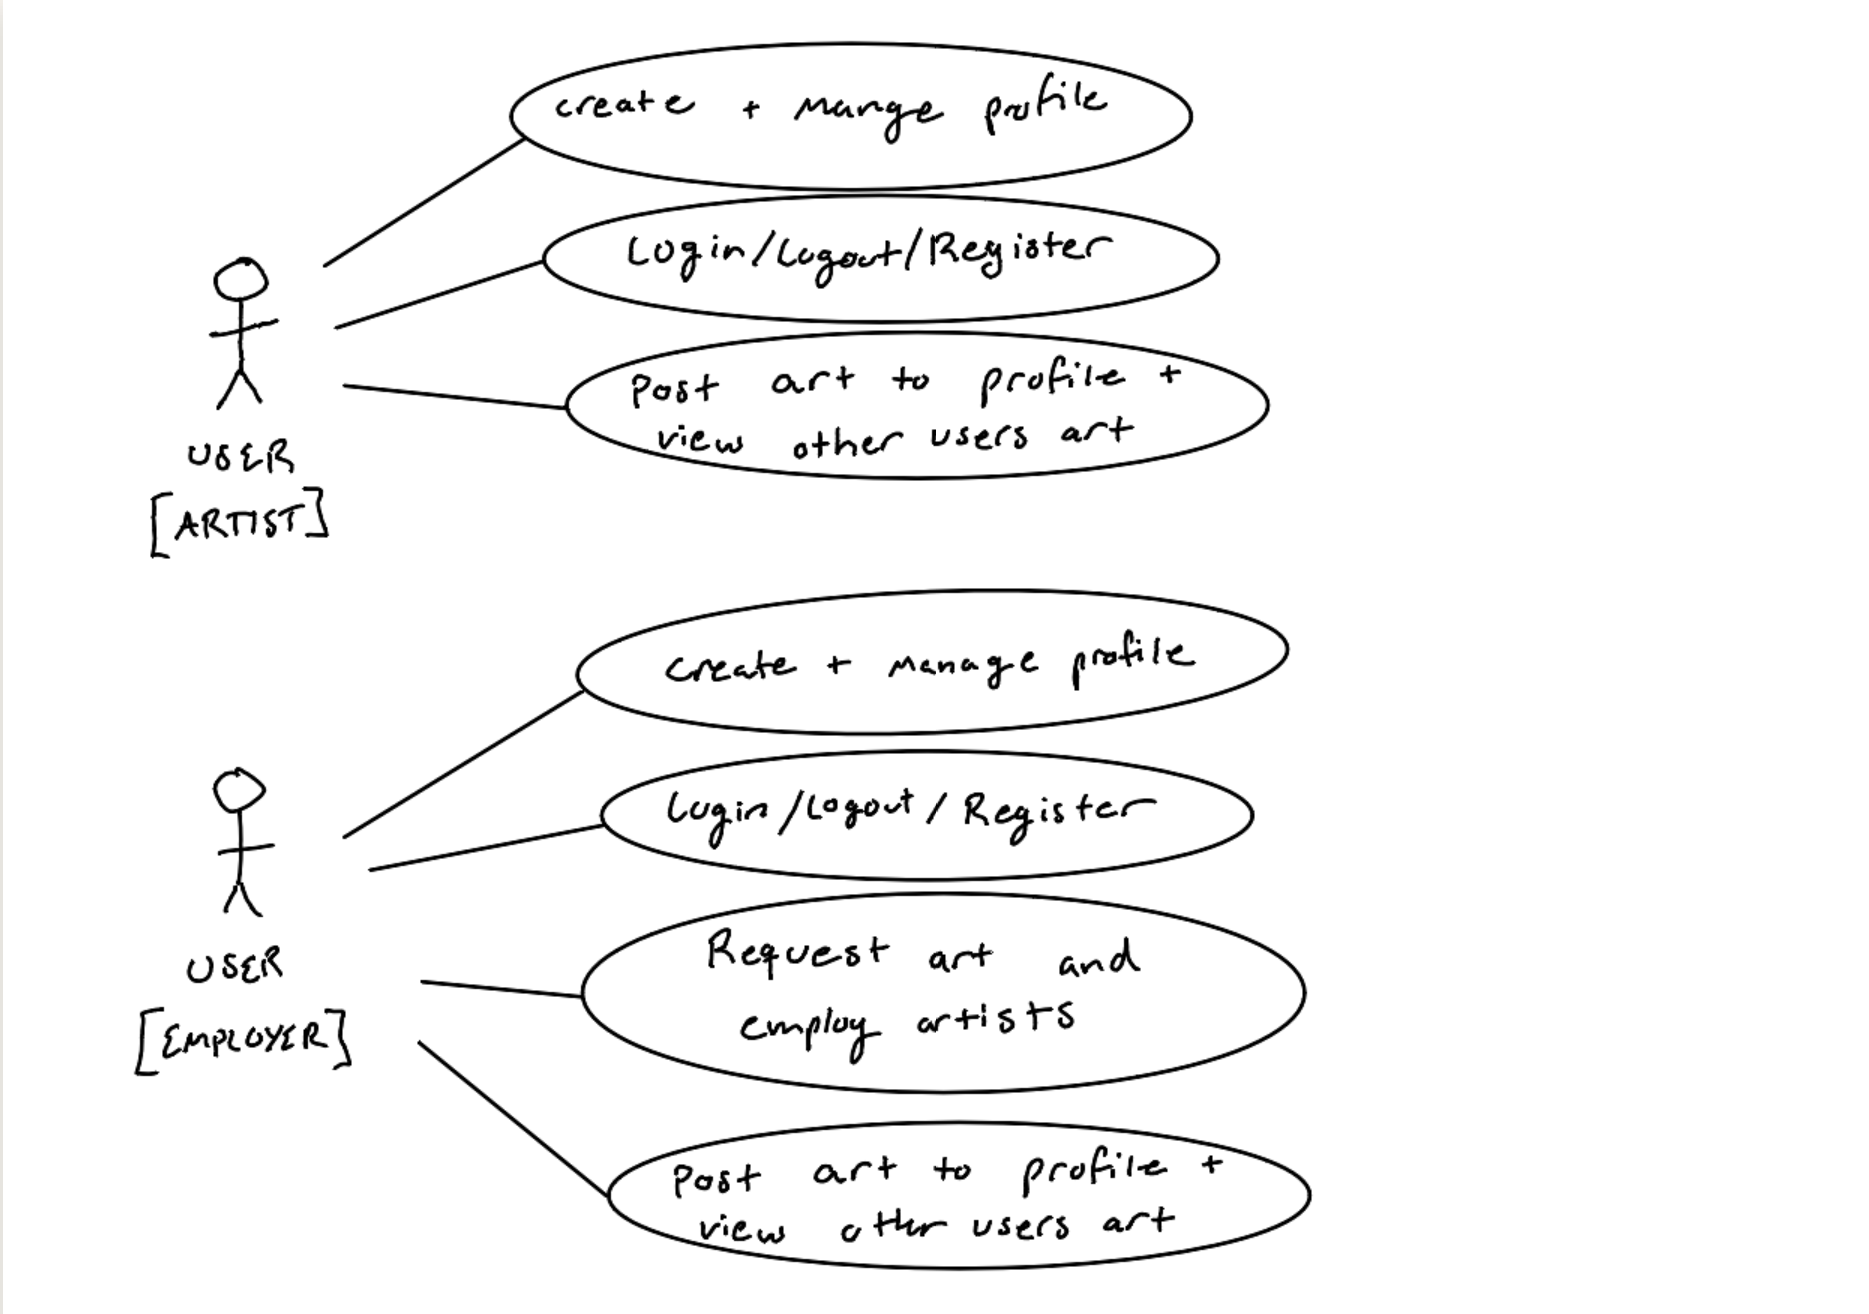 create + mange profile
Login/Logout/Register
Post art to profile +
view other users art
USER
[ARTIST]
create + manage profile
Login/Logout/Register
Request art and
employ artists
USER
[EMPLOYER]
Post art to profile +
view other users art